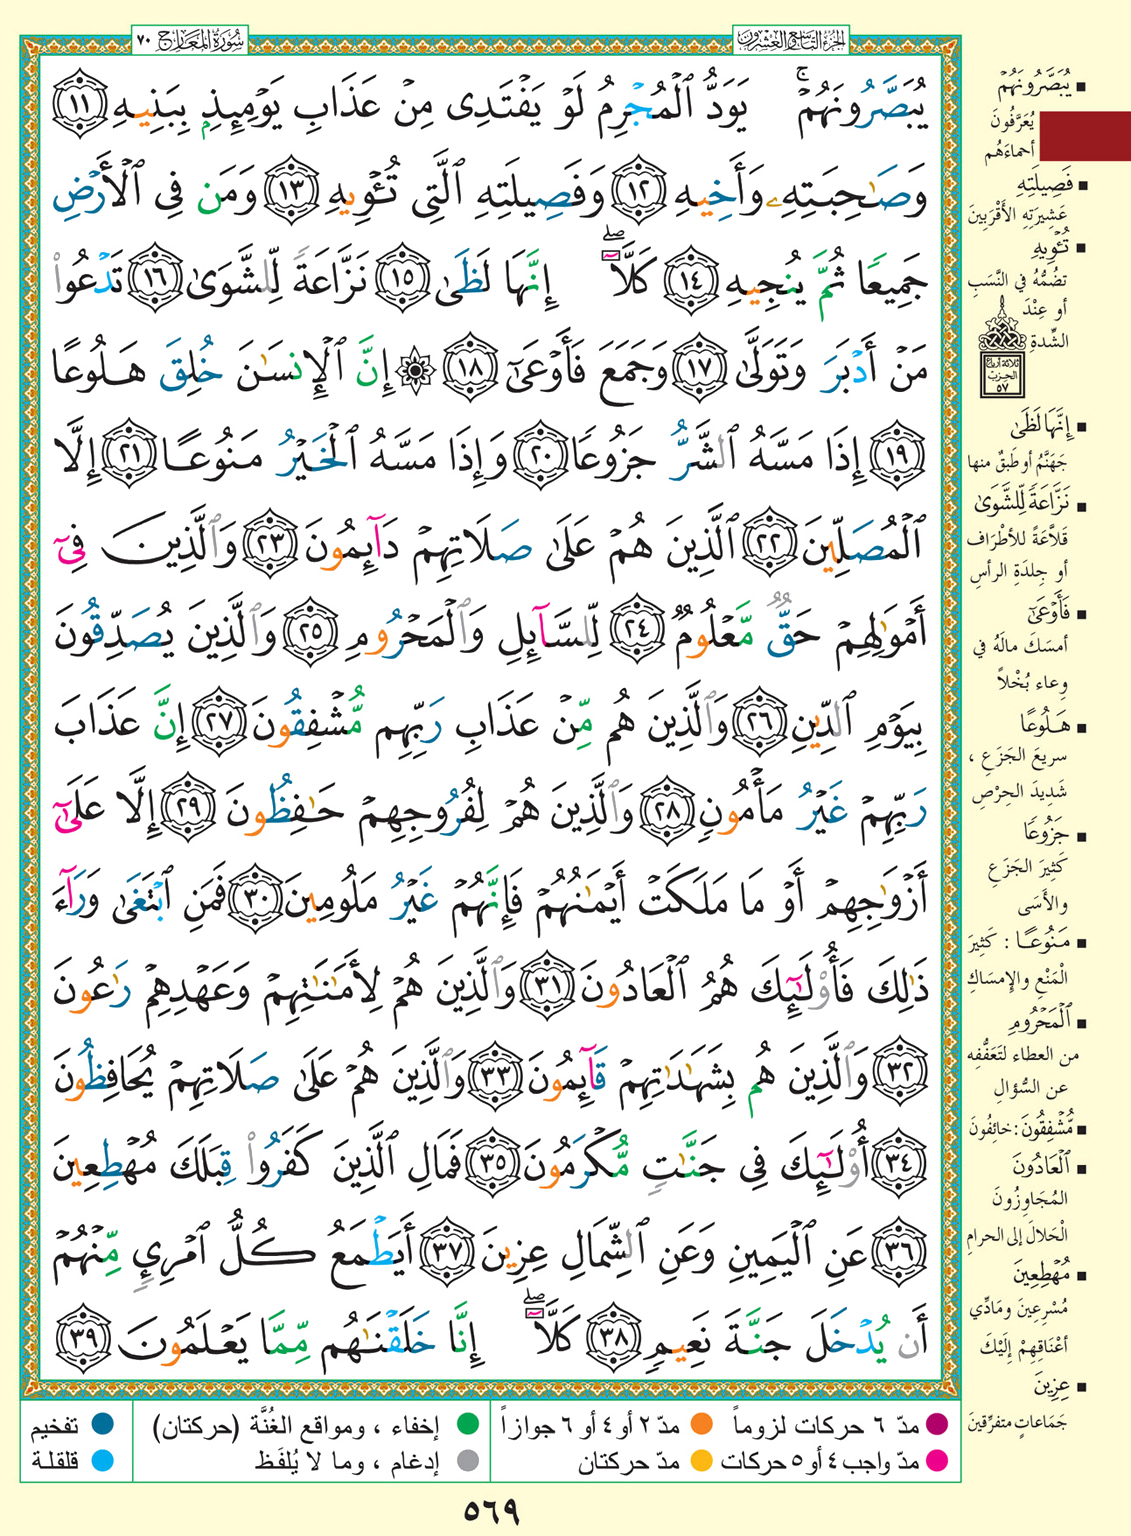 الجزء التاسع والعشرون
سُورَةُ المَعَارِج ٧٠
يُبَصَّرُونَهُمْ ۚ يَوَدُّ ٱلْمُجْرِمُ لَوْ يَفْتَدِى مِنْ عَذَابِ يَوْمِئِذٍۭ بِبَنِيهِ ١١
وَصَـٰحِبَتِهِۦ وَأَخِيهِ ١٢ وَفَصِيلَتِهِ ٱلَّتِى تُـْٔوِيهِ ١٣ وَمَن فِى ٱلْأَرْضِ
جَمِيعًا ثُمَّ يُنجِيهِ ١٤ كَلَّآ ۖ إِنَّهَا لَظَىٰ ١٥ نَزَّاعَةً لِّلشَّوَىٰ ١٦ تَدْعُوا۟
مَنْ أَدْبَرَ وَتَوَلَّىٰ ١٧ وَجَمَعَ فَأَوْعَىٰٓ ١٨ ۞ إِنَّ ٱلْإِنسَـٰنَ خُلِقَ هَلُوعًا
١٩ إِذَا مَسَّهُ ٱلشَّرُّ جَزُوعًا ٢٠ وَإِذَا مَسَّهُ ٱلْخَيْرُ مَنُوعًا ٢١ إِلَّا
ٱلْمُصَلِّينَ ٢٢ ٱلَّذِينَ هُمْ عَلَىٰ صَلَاتِهِمْ دَآئِمُونَ ٢٣ وَٱلَّذِينَ فِىٓ
أَمْوَٰلِهِمْ حَقٌّ مَّعْلُومٌ ٢٤ لِّلسَّآئِلِ وَٱلْمَحْرُومِ ٢٥ وَٱلَّذِينَ يُصَدِّقُونَ
بِيَوْمِ ٱلدِّينِ ٢٦ وَٱلَّذِينَ هُم مِّنْ عَذَابِ رَبِّهِم مُّشْفِقُونَ ٢٧ إِنَّ عَذَابَ
رَبِّهِمْ غَيْرُ مَأْمُونٍ ٢٨ وَٱلَّذِينَ هُمْ لِفُرُوجِهِمْ حَـٰفِظُونَ ٢٩ إِلَّا عَلَىٰٓ
أَزْوَٰجِهِمْ أَوْ مَا مَلَكَتْ أَيْمَـٰنُهُمْ فَإِنَّهُمْ غَيْرُ مَلُومِينَ ٣٠ فَمَنِ ٱبْتَغَىٰ وَرَآءَ
ذَٰلِكَ فَأُو۟لَـٰٓئِكَ هُمُ ٱلْعَادُونَ ٣١ وَٱلَّذِينَ هُمْ لِأَمَـٰنَـٰتِهِمْ وَعَهْدِهِمْ رَٰعُونَ
٣٢ وَٱلَّذِينَ هُم بِشَهَـٰدَٰتِهِمْ قَآئِمُونَ ٣٣ وَٱلَّذِينَ هُمْ عَلَىٰ صَلَاتِهِمْ يُحَافِظُونَ
٣٤ أُو۟لَـٰٓئِكَ فِى جَنَّـٰتٍ مُّكْرَمُونَ ٣٥ فَمَالِ ٱلَّذِينَ كَفَرُوا۟ قِبَلَكَ مُهْطِعِينَ
٣٦ عَنِ ٱلْيَمِينِ وَعَنِ ٱلشِّمَالِ عِزِينَ ٣٧ أَيَطْمَعُ كُلُّ ٱمْرِئٍ مِّنْهُمْ
أَن يُدْخَلَ جَنَّةَ نَعِيمٍ ٣٨ كَلَّآ ۖ إِنَّا خَلَقْنَـٰهُم مِّمَّا يَعْلَمُونَ ٣٩
▪ يُبَصَّرُونَهُمْ
يُعَرَّفُونَ
أحماءَهُم
▪ فَصِيلَتِهِ
عَشِيرَتِهِ الأَقْرَبِينَ
▪ تُـْٔوِيهِ
تضُمُّهُ في النَّسَبِ
أو عِنْدَ
الشِّدةِ
ثلاثة أرباع
الحزب
٥٧
▪ إِنَّهَا لَظَىٰ
جَهَنَّمُ أو طَبَقٌ منها
▪ نَزَّاعَةً لِّلشَّوَىٰ
قَلاَّعَةً للأطْرَاف
أو جِلدَةِ الرأسِ
▪ فَأَوْعَىٰٓ
أمسَكَ مالَهُ في
وِعاء بُخْلاً
▪ هَلُوعًا
سريعَ الجَزَعِ ،
شَدِيدَ الحِرْصِ
▪ جَزُوعًا
كَثِيرَ الجَزَعِ
والأَسَى
▪ مَنُوعًا : كَثِيرَ
الْمَنْعِ والإِمسَاكِ
▪ ٱلْمَحْرُومِ
من العطاء لتَعَفُّفِه
عن السُّؤالِ
▪ مُّشْفِقُونَ : خائِفُونَ
▪ ٱلْعَادُونَ
المُجَاوِزُونَ
الْحَلالَ إلى الحرامِ
▪ مُهْطِعِينَ
مُسْرِعِينَ ومَادِّي
أعْنَاقِهِمْ إِلَيْكَ
▪ عِزِينَ
جَمَاعاتٍ متفرِّقينَ
مدّ ٦ حركات لزوماً
مدّ ٢ أو ٤ أو ٦ جوازاً
إخفاء ، ومواقع الغُنَّة (حركتان)
تفخيم
مدّ واجب ٤ أو ٥ حركات
مدّ حركتان
إدغام ، وما لا يُلفَظ
قلقلة
٥٦٩